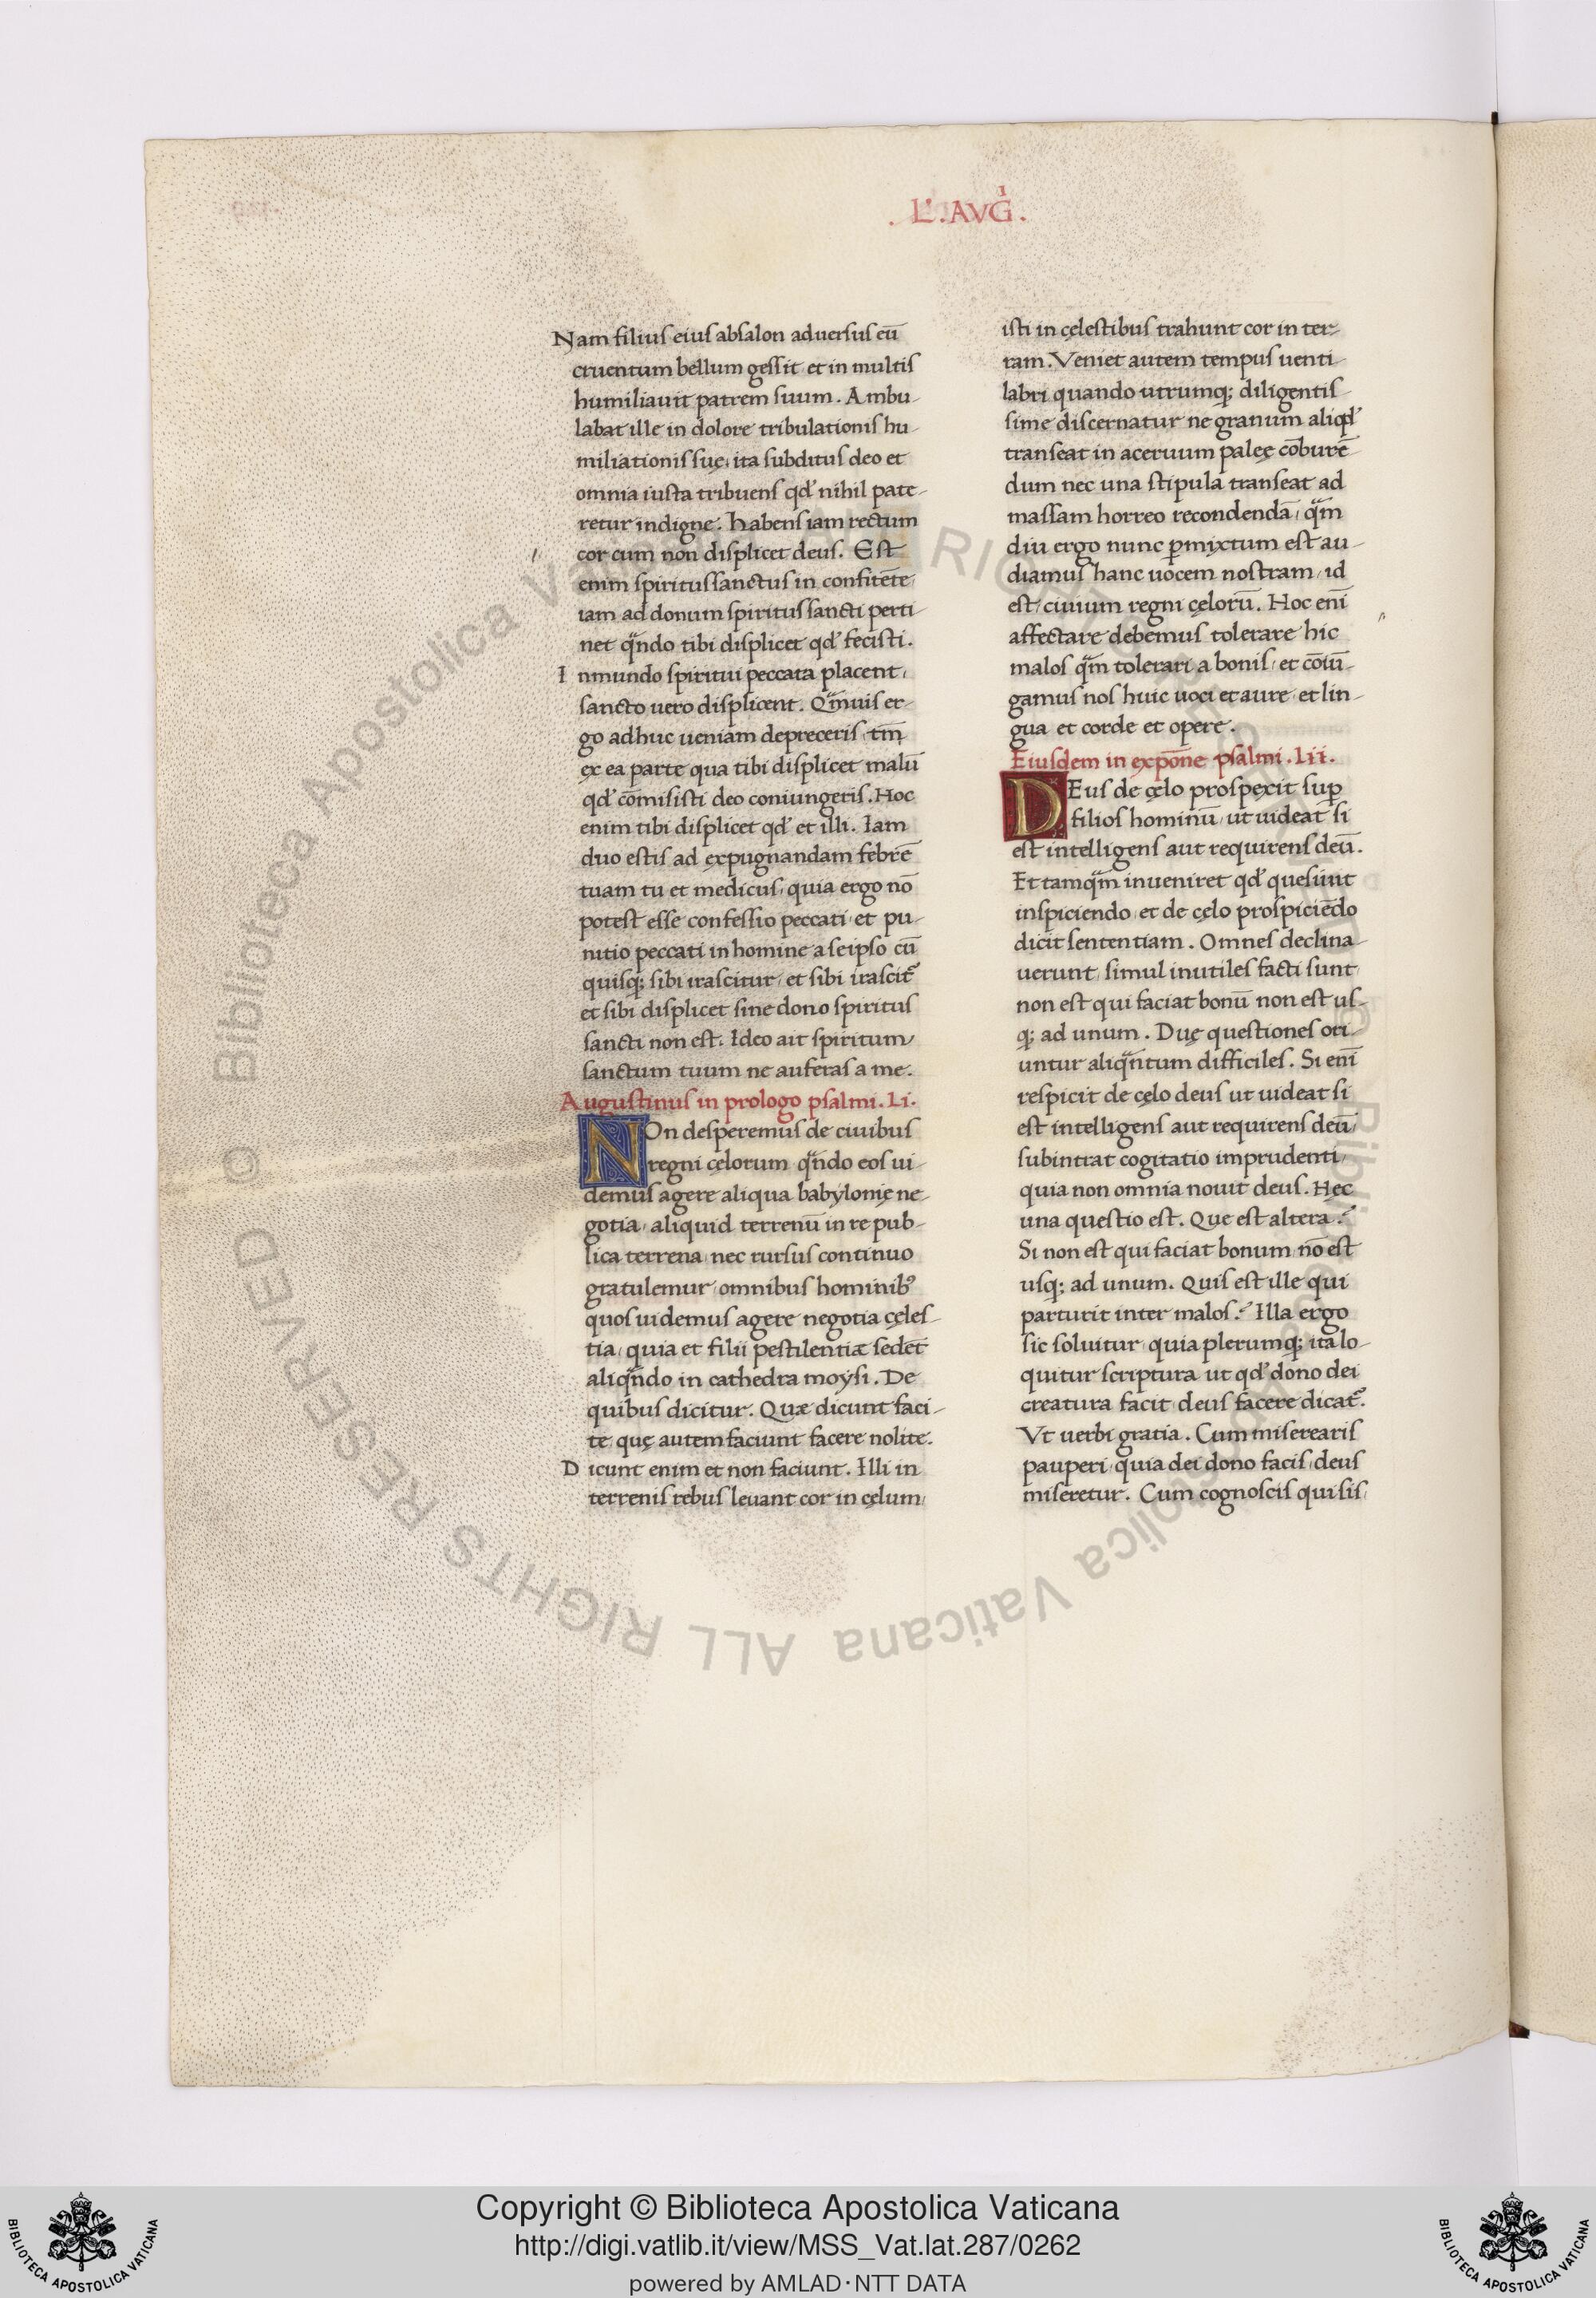 . L'. AVGͥ .
Nam filius eius absalon aduersus eū
cruentum bellum gessit et in multis
humiliauit patrem suum. Ambu-
labat ille in dolore tribulationis hu-
miliationis suę, ita subditus deo et
omnia iusta tribuens qd' nihil pate-
retur indigne. Habens iam rectum
cor cum non displicet deus. Est
enim spiritussanctus in confitēte,
iam ad donum spiritus sancti perti-
net qn̄do tibi displicet qd' fecisti.
Inmundo spiritui peccata placent,
sancto uero displicent. Qm̄uis er-
go adhuc ueniam depreceris, tm̄
ex ea parte qua tibi displicet malū
qd' cōmisisti deo coniungeris. Hoc
enim tibi displicet qd' et illi. Iam
duo estis ad expugnandam febrē
tuam tu et medicus, quia ergo nō
potest esse confessio peccati, et pu-
nitio peccati in homine a seipso cū
quisq; sibi irascitur, et sibi irascit᷑
et sibi displicet sine dono spiritus
sancti non est. Ideo ait spiritum,
sanctum tuum ne auferas a me.
Augustinus in prologo psalmi. Li.
NOn desperemus de ciuibus
regni cęlorum qn̄do eos ui-
demus agere aliqua babylonię ne-
gotia, aliquid terrenū in re pub-
lica terrena, nec rursus continuo
gratulemur, omnibus hominibꝰ
quos uidemus agere negotia cęles-
tia, quia et filii pestilentiæ sedēt
aliqn̄do in cathedra moysi. De
quibus dicitur. Quæ dicunt faci-
te, quę autem faciunt facere nolite.
Dicunt enim et non faciunt. Illi in
terrenis rebus leuant cor in cęlum,
isti in cęlestibus trahunt cor in ter-
ram. Veniet autem tempus uenti-
labri quando utrumq; diligentis-
sime discernatur ne granum aliqd'
transeat in aceruum paleę cōburē-
dum nec una stipula transeat ad
massam horreo recondendā, qm̄
diu ergo nunc ꝑmixtum est au-
diamus hanc uocem nostram, id
est, ciuium regni cęlorū. Hoc enī
affectare debemus tolerare hic
malos qm̄ tolerari a bonis, et cōiū-
gamus nos huic uoci et aure, et lin-
gua et corde et opere.
Eiusdem in expōne psalmi. Lii.
DEus de cęlo prospexit suꝑ
filios hominū, ut uideat si
est intelligens aut requirens deū.
Et tamqm̄ inueniret qd' quesiuit
inspiciendo, et de cęlo prospiciēdo
dicit sententiam. Omnes declina-
uerunt, simul inutiles facti sunt,
non est qui faciat bonū non est us-
q; ad unum. Duę questiones ori-
untur aliqn̄tum difficiles. Si enī
respicit de cęlo deus ut uideat si
est intelligens aut requirens deū,
subintrat cogitatio imprudenti,
quia non omnia nouit deus. Hęc
una questio est. Que est altera?
Si non est qui faciat bonum nō est
usq; ad unum. Quis est ille qui
parturit inter malos? Illa ergo
sic soluitur, quia plerumq; ita lo-
quitur scriptura ut qd' dono dei
creatura facit, deus facere dicat᷑.
Vt uerbi gratia. Cum miserearis
pauperi, quia dei dono facis, deus
miseretur. Cum cognoscis qui sis,
© Biblioteca Apostolica Vaticana ALL RIGHTS RESERVED
Copyright © Biblioteca Apostolica Vaticana
http://digi.vatlib.it/view/MSS_Vat.lat.287/0262
powered by AMLAD·NTT DATA
BIBLIOTECA APOSTOLICA VATICANA
BIBLIOTECA APOSTOLICA VATICANA